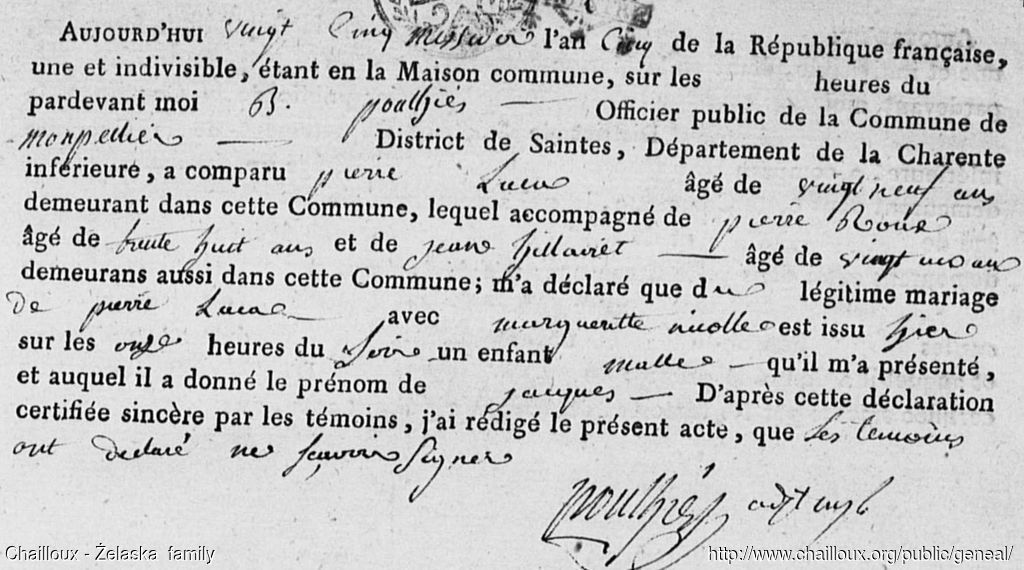 AUJOURD'HUI vingt cinq messidor l'an cinq de la République française,
une et indivisible, étant en la Maison commune, sur les heures du
pardevant moi B. poulhiés Officier public de la Commune de
monpellier District de Saintes, Département de la Charente
inférieure, a comparu pierre Lucas âgé de vingt neuf ans
demeurant dans cette Commune, lequel accompagné de pierre Roux
âgé de trente huit ans et de jean hillairet âgé de vingt un ans
demeurans aussi dans cette Commune; m'a déclaré que du légitime mariage
De pierre Lucas avec margueritte nicolle est issu hier
sur les onze heures du Soir un enfant malle qu'il m'a présenté,
et auquel il a donné le prénom de jacques D'après cette déclaration
certifiée sincère par les témoins, j'ai rédigé le présent acte, que Les temoins
ont declaré ne sçavoir Signer
poulhiés
Chailloux - Żelaska family
http://www.chailloux.org/public/geneal/